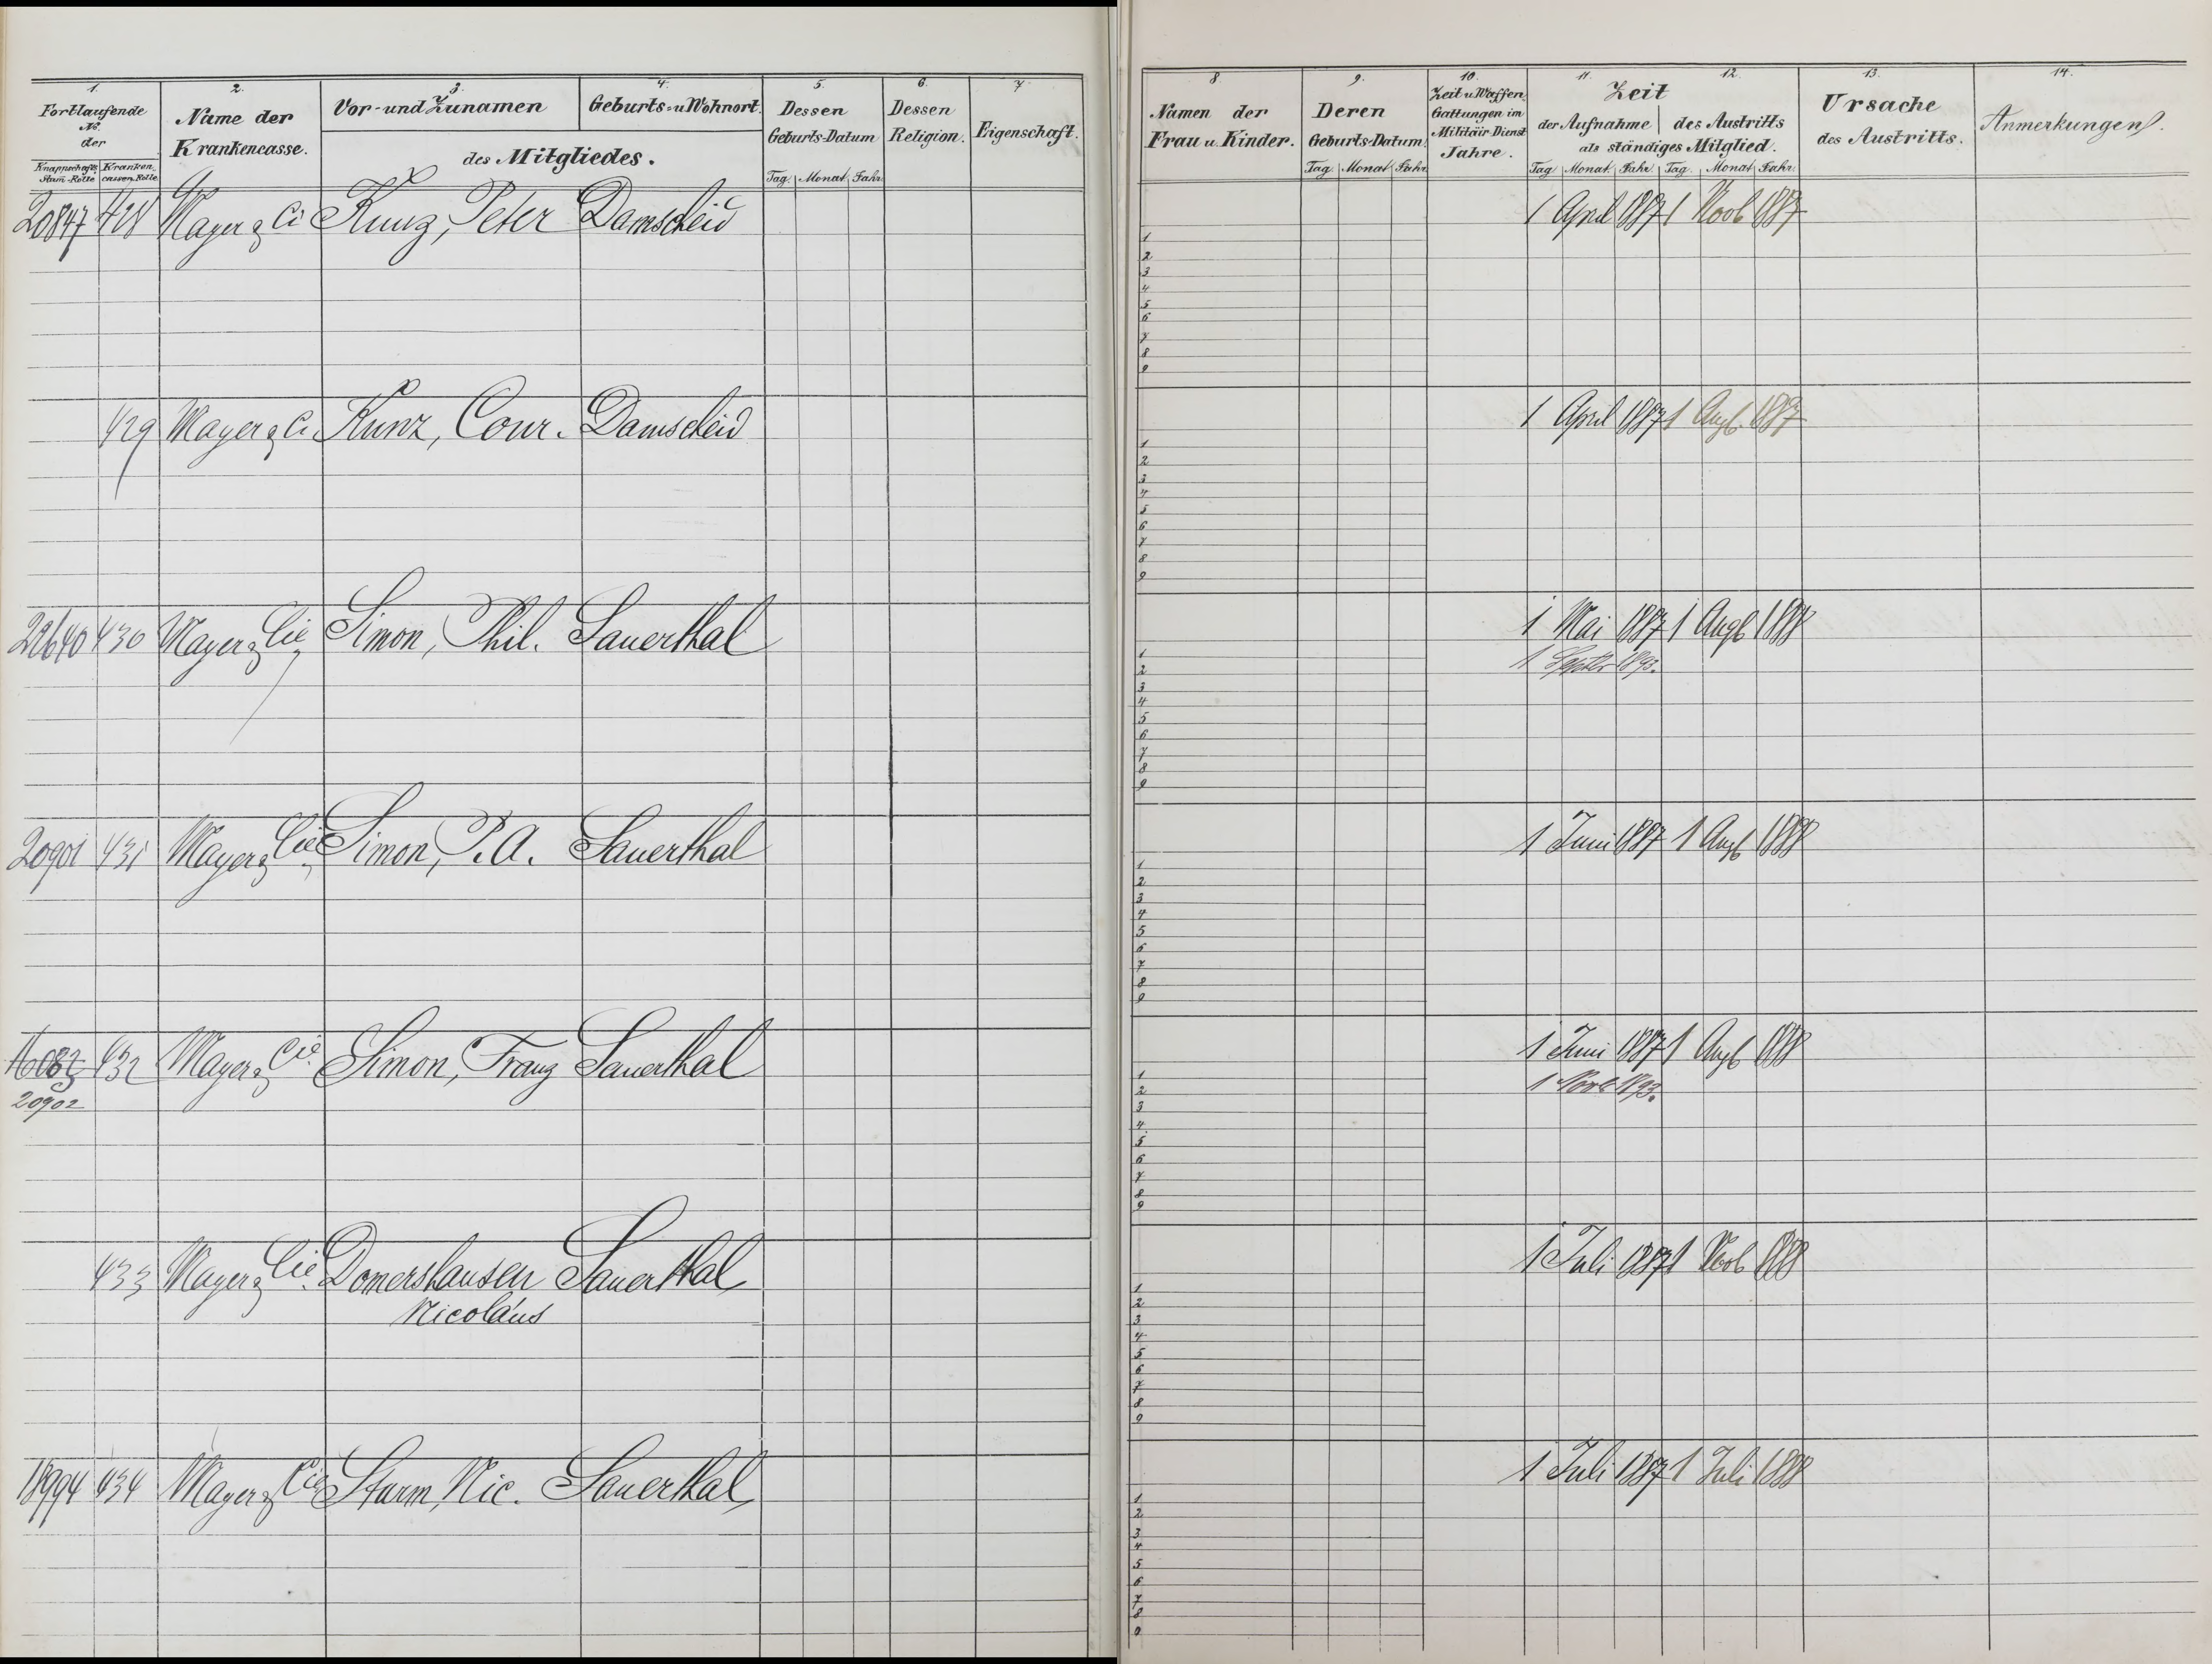 1. 2. 3. 4. 5. 6. 7
Fortlaufende No. der
Knappschafts Stam-Rolle Krankencassen-Rolle
Name der Krankencasse.
Vor- und Zunamen
Geburts- u Wohnort.
des Mitgliedes.
Dessen Geburts-Datum
Tag. Monat. Jahr
Dessen Religion.
Eigenschaft.
20847 428 Mayer & Ci Kunz, Peter Damscheid
429 Mayer & Ci. Kunz, Conr. Damscheid
430 Mayer & Cie Simon, Phil. Sauerthal
20901 431 Mayer & Cie Simon, P. A. Sauerthal
432 Mayer & Cie Simon, Franz Sauerthal
20902
433 Mayer & Cie. Domershausen Sauerthal
Nicoláus
18994 434 Mayer & Cie Sturm, Nic. Sauerthal
8 9. 10. 11. 12. 13. 14.
Namen der Frau u. Kinder.
Deren Geburts-Datum.
Tag. Monat Jahr.
Zeit u. Waffen Gattungen im Militäir-Dienst Jahre.
Zeit
der Aufnahme des Austritts
als ständiges Mitglied.
Tag Monat. Jahr. Tag. Monat. Jahr.
Ursache des Austritts.
Anmerkungen.
1 April 1887 1 Novb 1887
1
2
3
4
5
6
7
8
9
1 April 1887 1 Augb. 1887
1
2
3
4
5
6
7
8
9
1 Mai 1887 1 Augb 1888
1 Septbr 1893.
1
2
3
4
5
6
7
8
9
1 Juni 1887 1 Augb 1888
1
2
3
4
5
6
7
8
9
1 Juni 1887 1 Augb 1888
1 Novb 1893.
1
2
3
4
5
6
7
8
9
1 Juli 1887 1 Novb 1888
1
2
3
4
5
6
7
8
9
1 Juli 1887 1 Juli 1888
1
2
3
4
5
6
7
8
9